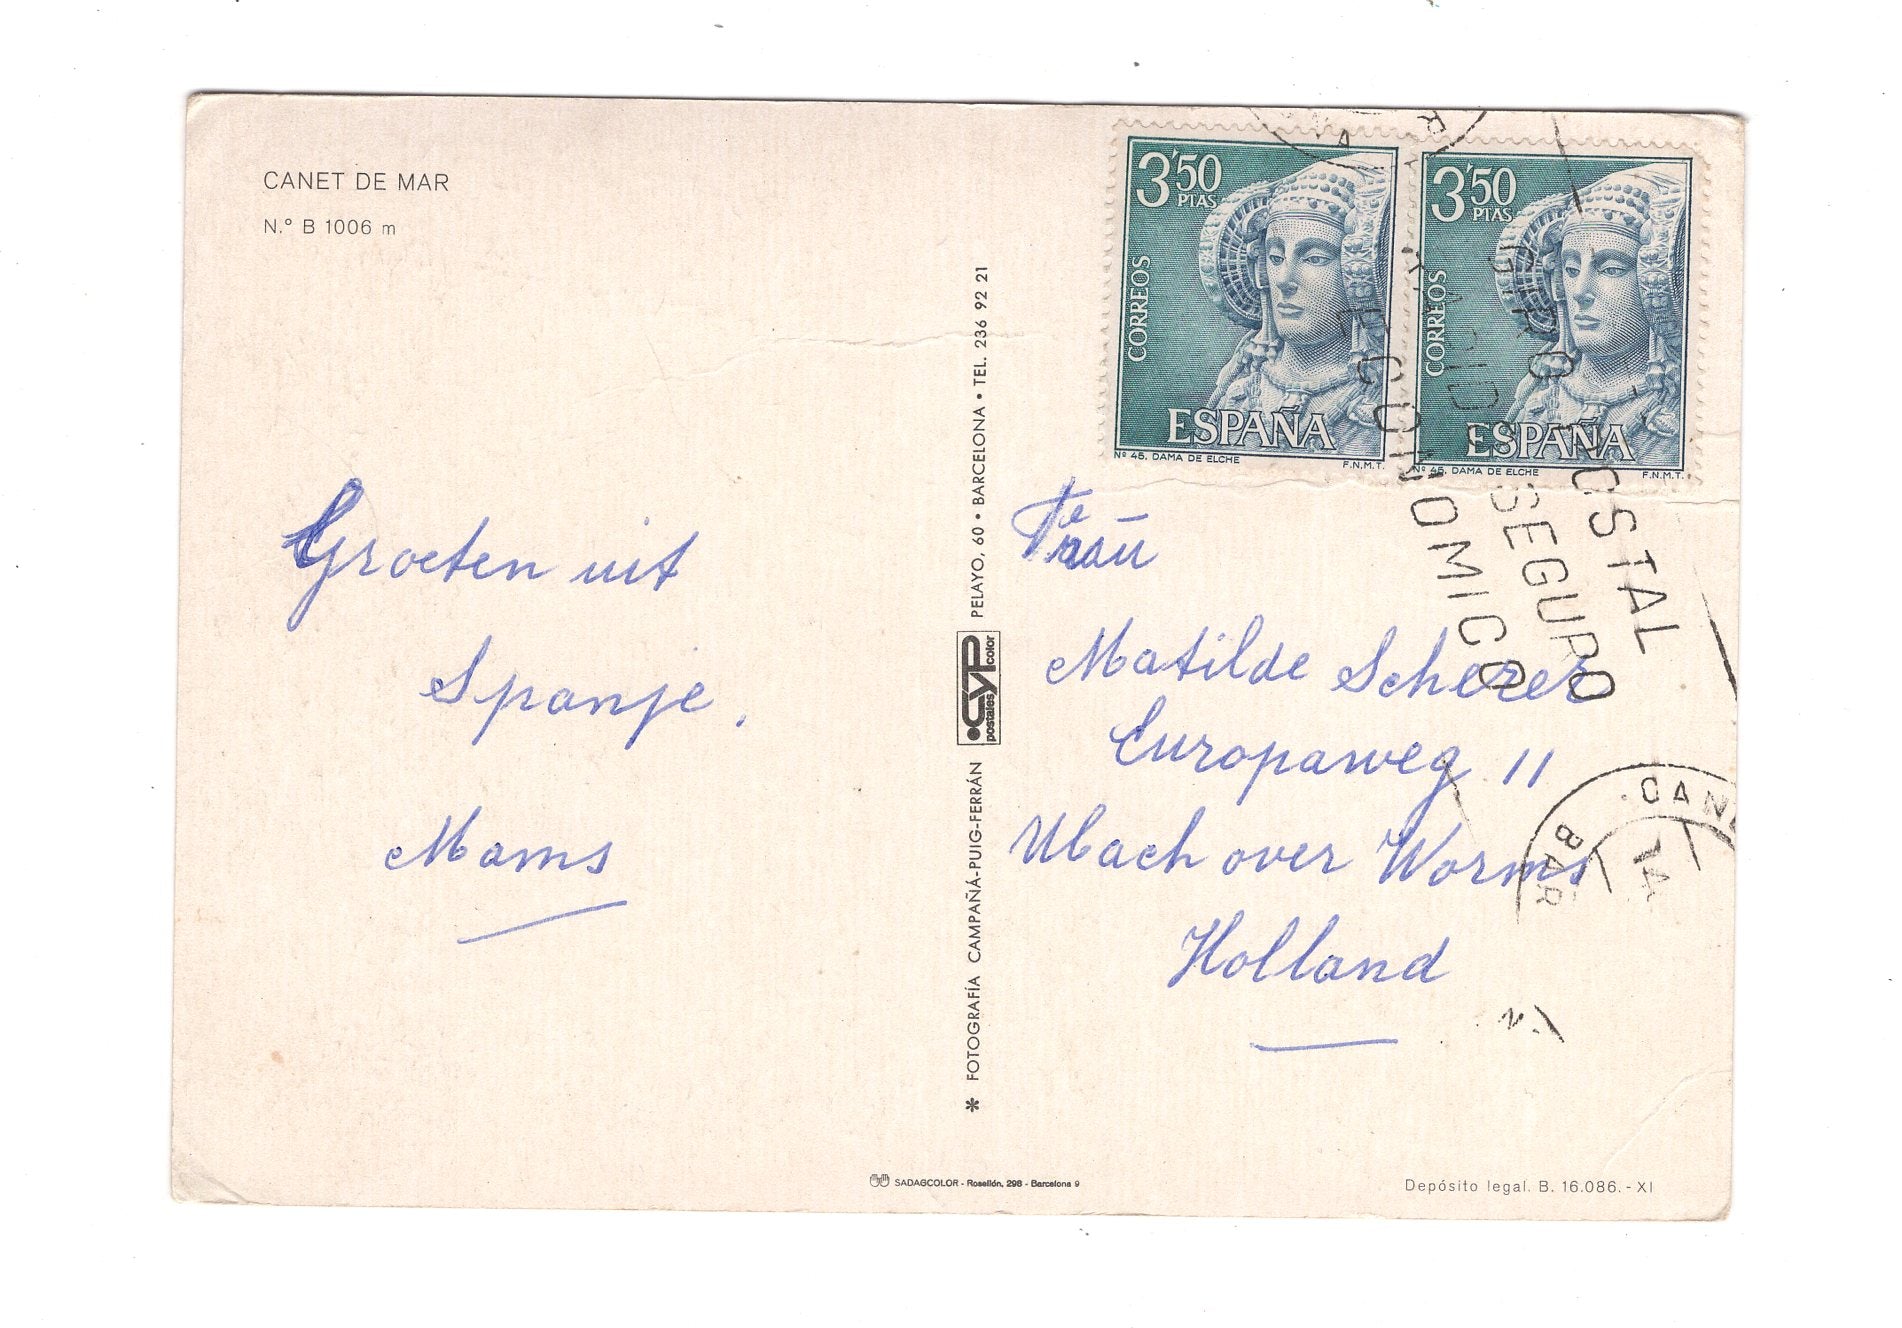 CANET DE MAR
N.º B 1006 m
Groeten uit
Spanje.
Mams
* FOTOGRAFÍA CAMPAÑÁ-PUIG-FERRÁN
CYP
postales color
PELAYO, 60 • BARCELONA • TEL. 236 92 21
SADAGCOLOR - Rosellón, 298 - Barcelona 9
3'50
PTAS
CORREOS
ESPAÑA
Nº 45. DAMA DE ELCHE F.N.M.T.
3'50
PTAS
CORREOS
ESPAÑA
Nº 45. DAMA DE ELCHE F.N.M.T.
GIRO POSTAL
RAPIDO SEGURO
ECONOMICO
CANE
BAR
14
Frau
Matilde Scherer
Europaweg 11
Ubach over Worms
Holland
Depósito legal. B. 16.086.-XI